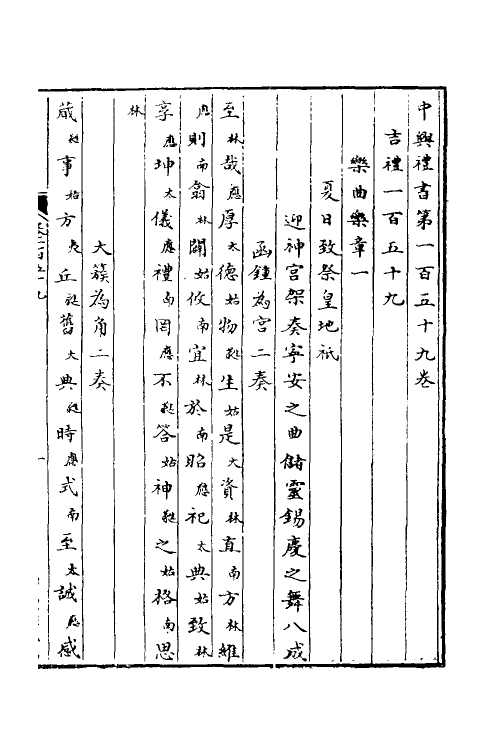 中興禮書第一百五十九卷
吉禮一百五十九
樂曲樂章一
夏日致祭皇地祇
迎神宮架奏寧安之曲儲靈錫慶之舞八成
函鍾為宮二奏
至林哉應厚太德姑物蕤生姑是大資林直南方林維
應則南翕林闢姑伩南宜林於南昭應祀太典姑致林
享應坤太儀應禮南罔應不蕤答姑神蕤之姑格南思
林
大簇為角二奏
蕆蕤事姑方夷丘蕤舊大典蕤時應式南至太誠應感